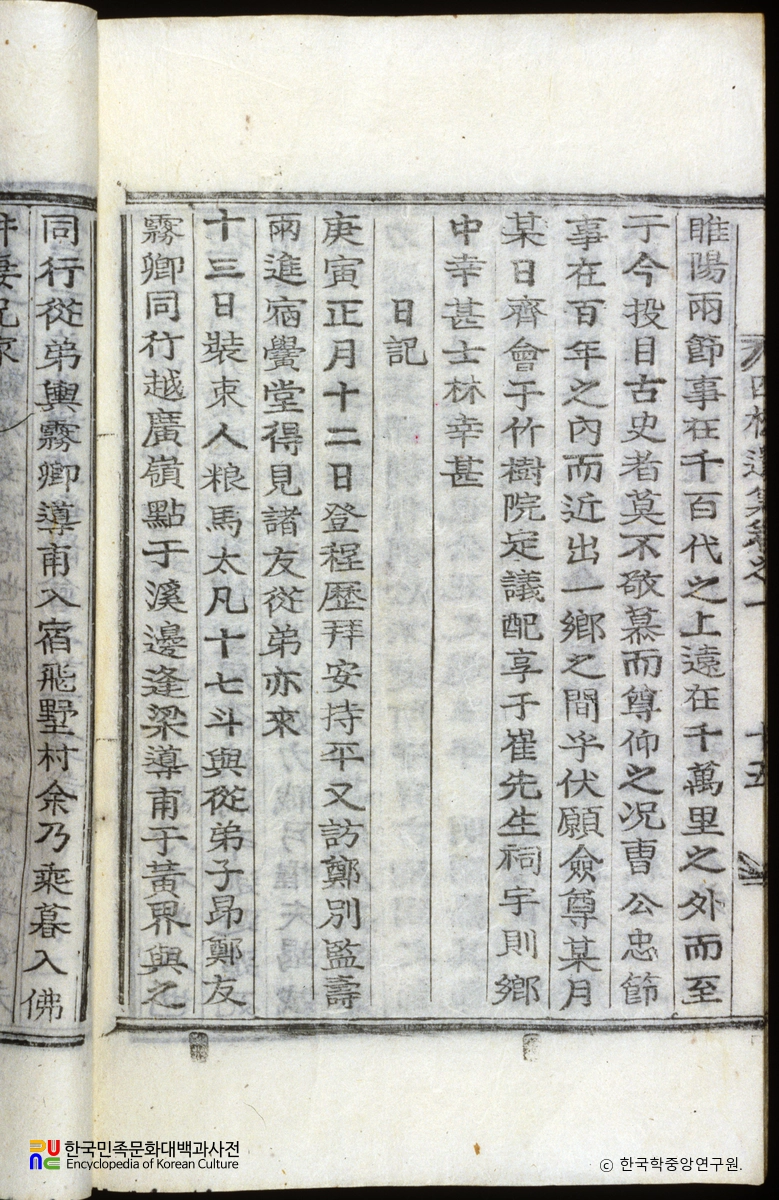 睢陽兩節事在千百代之上遠在千萬里之外而至
于今投目古史者莫不敬慕而尊仰之况曺 公忠節
事在百年之內而近出一鄕之間乎伏願僉尊某月
某日齊會于竹樹院定議配享于崔先生祠宇則鄕
中幸甚士林幸甚
日記
庚寅正月十二日登程歷拜安持平又訪鄭別監壽
兩進宿黌堂得見諸友從弟亦來
十三日裝束人粮馬太凡十七斗與從弟子昂鄭友
霧卿同行越廣嶺點于溪邊逢梁導甫于黃界與之
同行從弟與霧卿導甫入宿飛墅村余乃乘暮入佛
遺集卷之一
十五
한국민족문화대백과사전
Encyclopedia of Korean Culture
ⓒ 한국학중앙연구원.